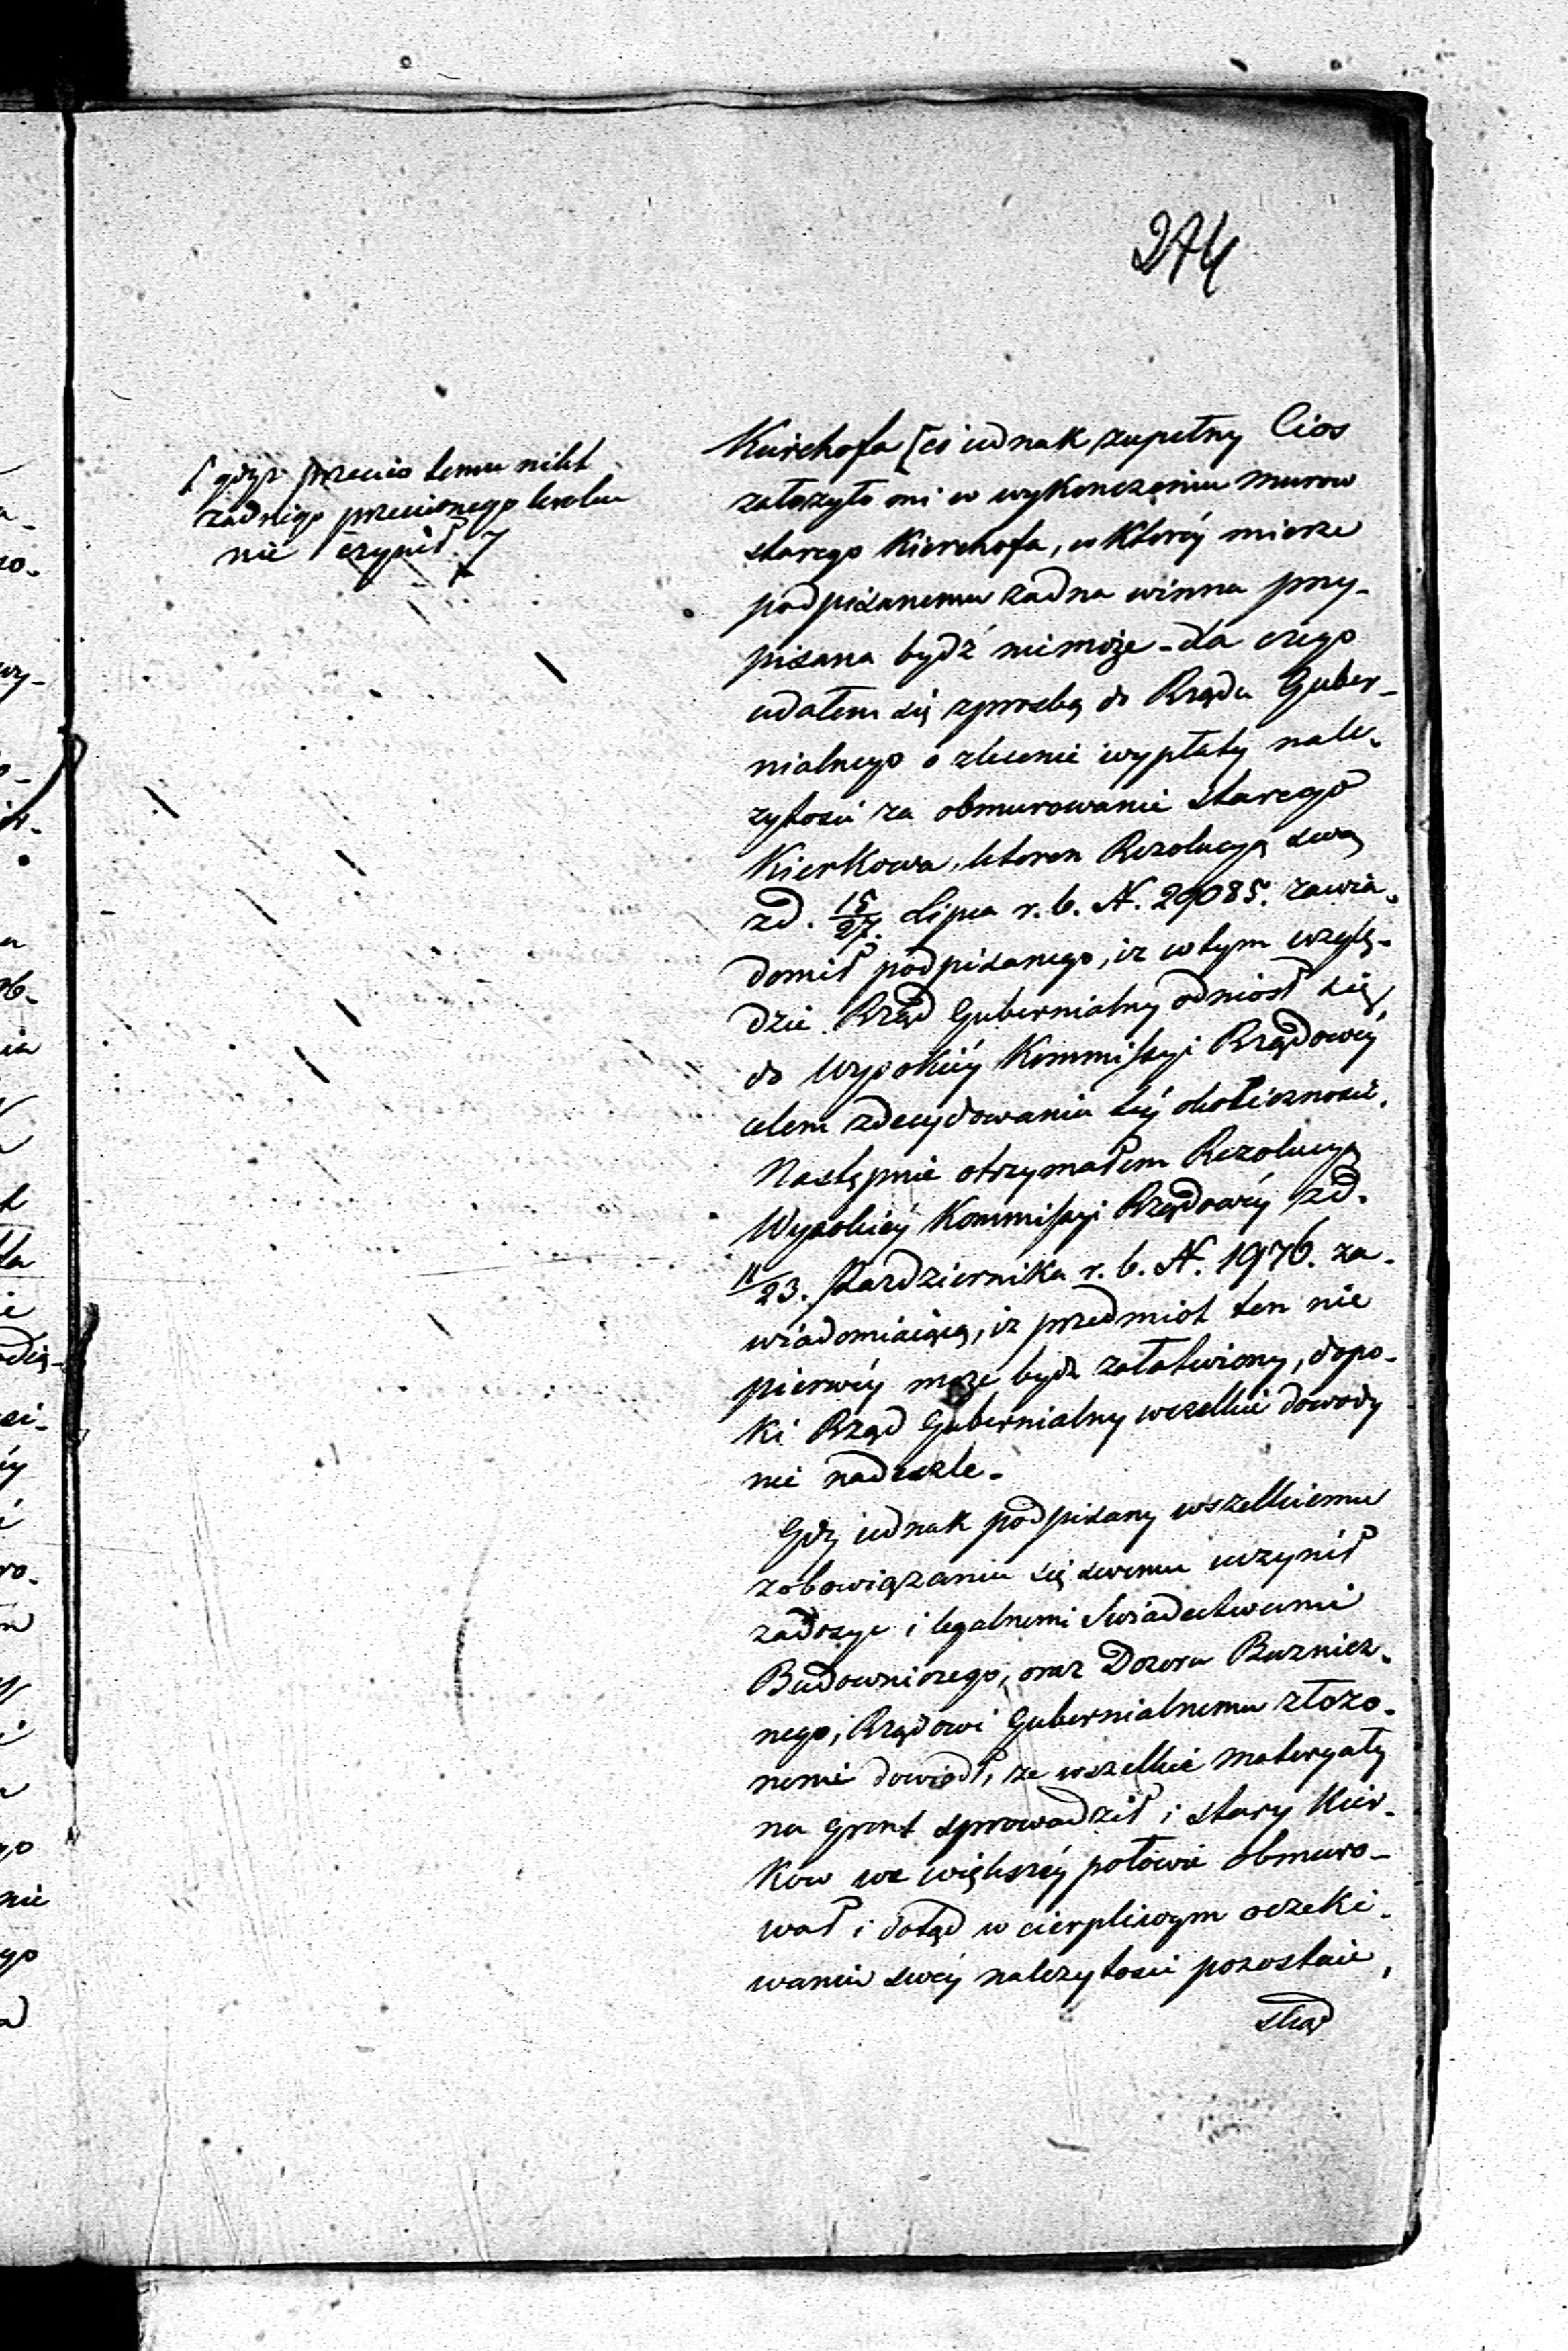 274
[gdyż przeciw temu nikt
żadnego przeciwnego kroku
nie czynił.]
Kirchofa [co iednak zupełny Cios
założyło mi w wykonczeniu murow
starego Kierchofa, w którey mierze
podpisanemu żadna winna przy-
pisana bydź niemoże - dla czego
udałem się zprosbą do Rządu Guber-
nialnego o zlecenie wypłaty nale-
żytosci za obmurowanie starego
Kierkowa, ktoren Rezolucyą swą
zd. 15/27. Lipca r. b. N. 29085. zawia-
domił podpisanego, iż wtym wzglę-
dzie Rząd Gubernialny odniosł się
do Wysokiéy Kommissyi Rządowéy
celem zdecydowania téy okolicznosci.
Następnie otrzymałem Rezolucyą
Wysokiéy Kommissyi Rządowéy zd.
11/23. Pazdziernika r. b. N. 1976. za-
wiadomiaiącą, iż przedmiot ten nie
pierwéy może bydź załatwiony, dopo-
ki Rząd Gubernialny wszelkie dowody
nie nadeszle.
Gdy iednak podpisany wszelkiemu
zobowiązaniu się swemu uczynił
zadosyc i legalnemi Swiadectwami
Budowniczego, oraz Dozoru Bożnicz-
nego, Rządowi Gubernialnemu złożo-
nemi dowiodł, że wszelkie materyały
na gront sprowadził i stary Kier-
kow we większéy połowie obmuro-
wał i dotąd w cierpliwym oczeki-
waniu swéy należytosci pozostaie,
ztąd